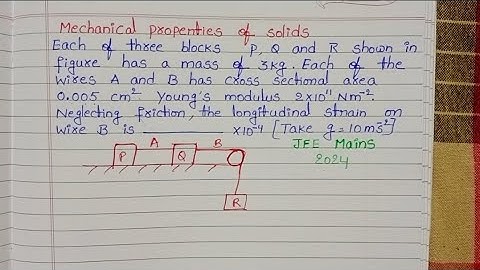 Mechanical properties of solids
Each of three blocks P, Q and R shown in
figure has a mass of 3kg. Each of the
wires A and B has cross sectional area
0.005 cm² Young's modulus 2×10¹¹ Nm⁻².
Neglecting friction, the longitudinal strain on
wire B is ________ ×10⁻⁴ [Take g=10ms⁻²]
JEE Mains
2024
A B
P Q
R